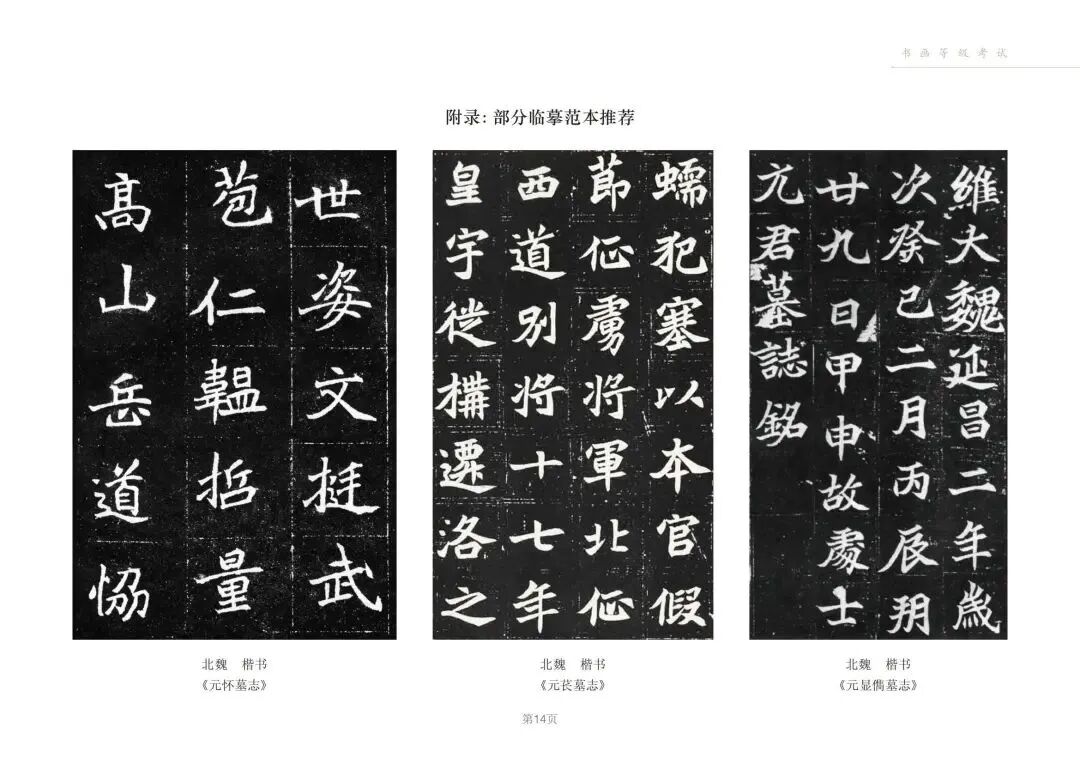 书画等级考试
附录：部分临摹范本推荐
世姿文挺武
苞仁韞哲量
高山岳道協
蠕犯塞以本官假
節征虜將軍北征
西道別將十七年
皇宇徙構遷洛之
維大魏延昌二年歲
次癸己二月丙辰朔
廿九日甲申故處士
元君墓誌銘
北魏 楷书
《元怀墓志》
北魏 楷书
《元苌墓志》
北魏 楷书
《元显儁墓志》
第14页